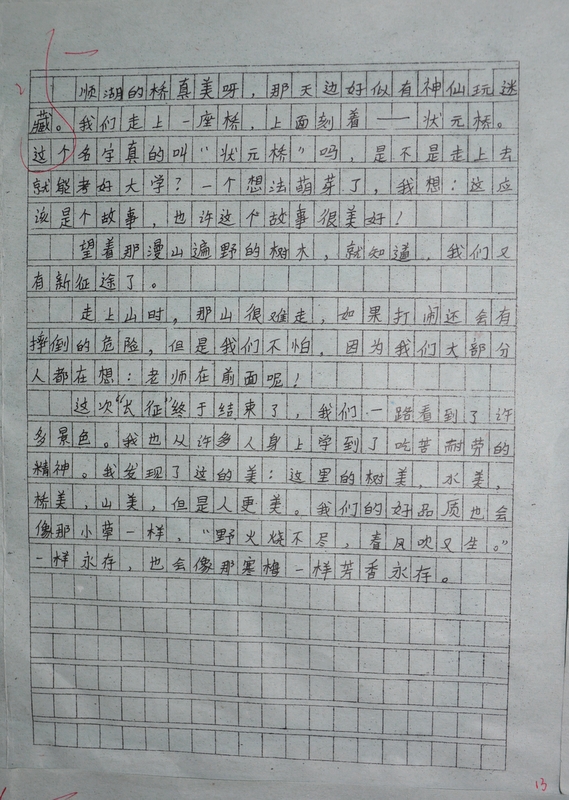 顺湖的桥真美呀，那天边好似有神仙玩迷
藏。我们走上一座桥，上面刻着——状元桥。
这个名字真的叫“状元桥”吗，是不是走上去
就能考好大学？一个想法萌芽了，我想：这应
该是个故事，也许这个故事很美好！
望着那漫山遍野的树木，就知道，我们又
有新征途了。
走上山时，那山很难走，如果打闹还会有
摔倒的危险，但是我们不怕，因为我们大部分
人都在想：老师在前面呢！
这次“长征”终于结束了，我们一路看到了许
多景色。我也从许多人身上学到了吃苦耐劳的
精神。我发现了这的美：这里的树美，水美，
桥美，山美，但是人更美。我们的好品质也会
像那小草一样，“野火烧不尽，春风吹又生。”
一样永存，也会像那寒梅一样芳香永存。
13